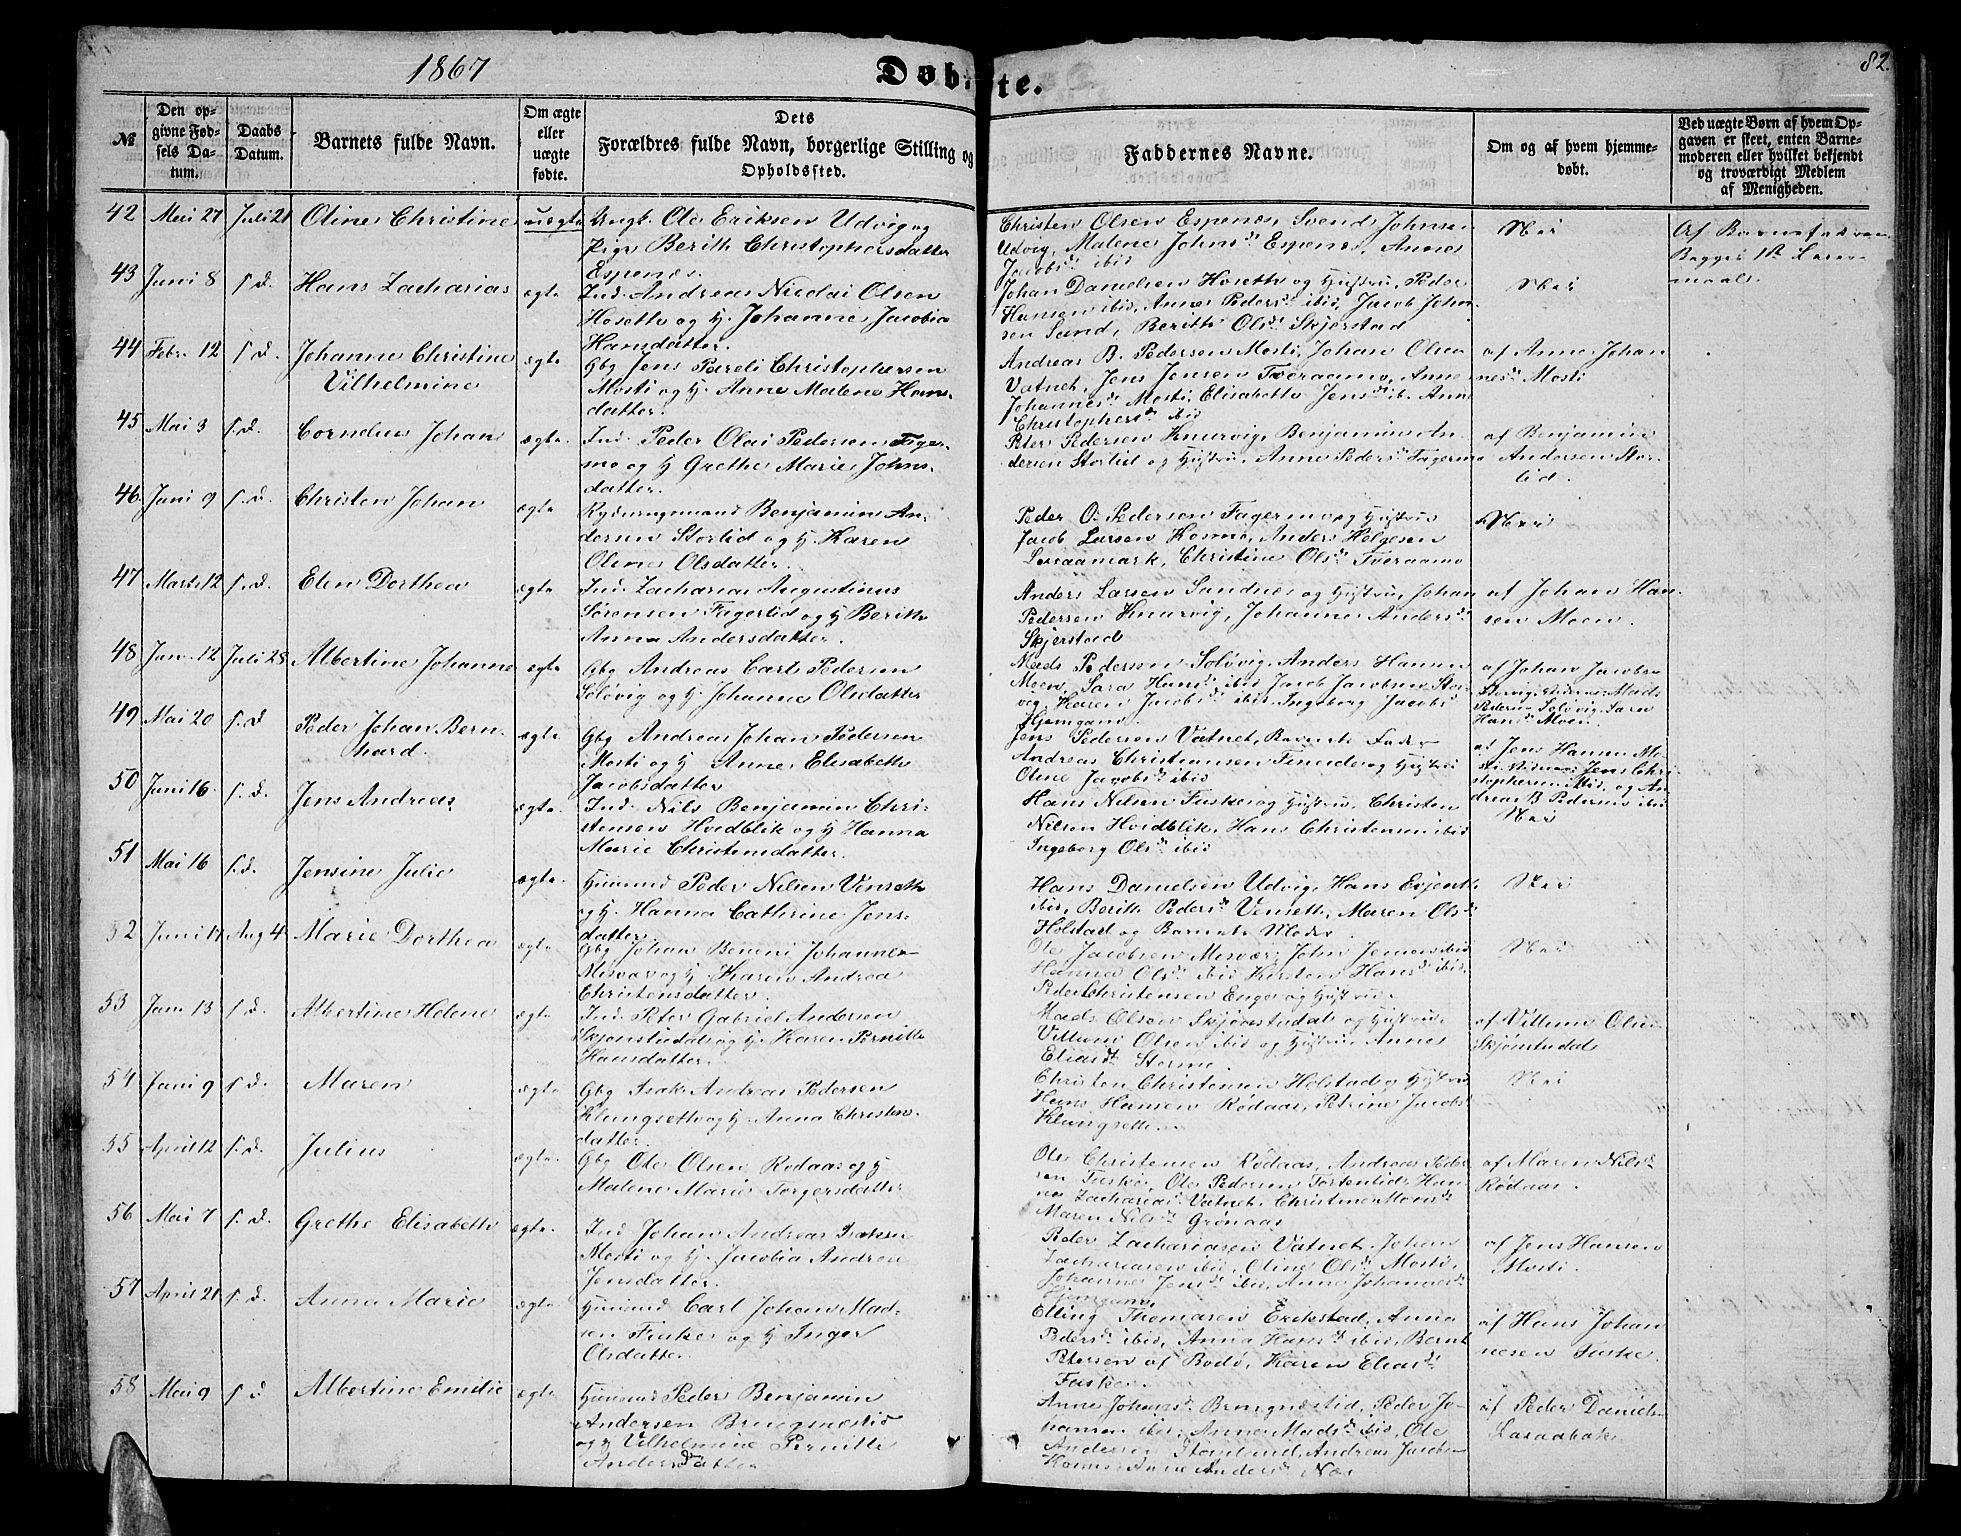 1867
Døbte.
82.
№
Den opgivne Fødsels Datum.
Daabs Datum.
Barnets fulde Navn.
Om ægte eller uægte fødte.
Dets Forældres fulde Navn, borgerlige Stilling og Opholdssted.
Faddernes Navne.
Om og af hvem hjemmedøbt.
Ved uægte Børn af hvem Opgaven er skeet, enten Barnemoderen eller hvilket bekjendt og troværdigt Medlem af Menigheden.
42 Mai 27 Juli 21 Oline Christine uægte Ungk. Ole Eriksen Udvig og
Pige Berith Christophersdatter
Espenæs.
Christen Olsen Espenæs, Svend Johnsen
Udvig, Malene Johnsd. Espenes, Anne
Jacobsd. ibid
Nei
Af Barnefaderen
Begges 1ste Leier-
maal.
43 Juni 8 s. d. Hans Zacharias ægte Ind. Andreas Nicolai Olsen
Hosette og H. Johanne Jacobia
Hansdatter.
Johan Danielsen Hosette og Hustru, Peder
Hansen ibid, Anne Pedersd. ibid, Jacob John-
sen Sund, Berith Olsd. Skjerstad
Nei
44 Febr. 12 s. d. Johanne Christine
Vilhelmine
ægte Gbg Jens Pareli Christophersen
Mosti og H. Anne Malene Hans-
datter.
Andreas B. Pedersen Mosti, Johan Olsen
Vatnet, Jens Jensen Tveraamo, Anne
Johannesd. Mosti, Elisabeth Jensd. ib. Anne
Christophersd. ibid
af Anne Johan
nesd. Mosti
45 Mai 3 s. d. Cornelius Johan ægte Ind. Peder Olai Pedersen Fager-
mo og H Grethe Marie Johns-
datter.
Peter Pedersen Knarvig, Benjamin An-
dersen Storlid og Hustru, Anne Pedersd. Fagermo
af Benjamin
Andersen Stor-
lid.
46 Juni 9 s. d. Christen Johan ægte Rydningsmand Benjamin An-
dersen Storlid og H. Karen
Oline Olsdatter.
Peder O. Pedersen Fagermo og Hustru
Jacob Larsen Kosmo, Anders Helgesen
Laxaamark, Christine Olsd. Tveraamo
Nei
47 Marts 12 s. d. Elen Dorthea ægte Ind. Zacharias Augustinus
Sørensen Fagerlid og H Berith
Anna Andersdatter.
Anders Larsen Sandnæs og Hustru, Johan
Pedersen Knarvig, Johanne Andersd.
Skjerstad
af Johan Han-
sen Moen.
48 Jan. 12 Juli 28 Albertine Johanne ægte Gbg Andreas Carl Pedersen
Soløvig og H. Johanna Olsdatter
Mads Pedersen Soløvig, Anders Hansen
Moen, Sara Hansd. ibid Jacob Jacobsen Stor-
vig, Karen Jacobsd. ibid. Ingeborg Jacobsd.
Hjemgam.
af Johan Jacobsen
Pedersen Soløvig, Sara
Hansd. Moen.
49 Mai 20 s. d Peder Johan Bern-
hard.
ægte Gbg Andreas Johan Pedersen
Mosti og H Anne Elisabeth
Jacobsdatter
Jens Pedersen Vatnet, Barnets Fader
Andreas Christiansen Fineide og Hustru
Oline Jacobsd. ibid
af Jens Hansen Mo-
sti, Jens Chri-
stophersen ibid, og An-
dreas B Pedersen ibid
50 Juni 16 s. d. Jens Andreas ægte Ind. Nils Benjamin Chri-
stensen Hvidblik og H Hanna
Marie Christensdatter.
Hans Nilsen Fuske og Hustru, Christen
Nilsen Hvidblik, Hans Christensen ibid
Ingeborg Olsd. ibid
Nei
51 Mai 16 s. d. Jensine Julie ægte. Huusmd Peder Nilsen Vensett
og H. Hanna Cathrine Jens-
datter
Hans Danielsen Udvig, Hans Evjent.
ibid, Berith Pedersd. Vensett, Maren Olsd.
Holstad og Barnets Moder.
Nei
52 Juni 14 Aug 4 Marie Dorthea ægte Gbg Johan Benoni Johannes-
Misvær og H Karen Andrea
Christensdatter.
Ole Jacobsen Misvær, John Jensen ibid
Hanna Olsd. ibid Kirsten Hansd. ibid,
Peder Christensen Enge og Hustru.
Nei
53 Jan. 13 s. d. Albertine Helene ægte Ind. Peter Gabriel Andersen
Skjønstudal og H. Karen Pernille
Hansdatter.
Mads Olsen Skjønstudal og Hustru.
Villum Olsen ibid og Hustru Anne
Eliasd. Stormo.
af Villum Olsen
Skjønstudal
54 Juni 9 s. d. Maren ægte Gbg Isak Andreas Pedersen
Klungsette og H. Anna Christens-
datter.
Christen Christensen Holstad og Hustru
Hans Hansen Rødaas, Petrine Jacobsd.
Klungsette.
Nei
55 April 12 s. d. Julius ægte. Gbg Ole Olsen Rødaas og H
Malene Marie Torgersdatter
Ole Christensen Rødaas, Andreas Peder-
sen Fuske, Ole Pedersen Tortenlid, Han-
na Zachariasd. Vatnet, Christine Monsd.
Maren Nilsd. Grønaas
af Maren Nilsd.
Rødaas.
56 Mai 7 s. d. Grethe Elisabeth ægte. Ind Johan Andreas Isaksen
Mosti og H. Jacobia Andrea
Jensdatter.
Peder Zachariasen Vatnet, Johan
Zachariasen ibid, Oline Olsd. Mosti,
Johanne Jensd. ibid, Anne Johannesd.
Hjemgam
af Jens Hansen
Mosti.
57 April 21 s. d. Anna Marie ægte. Huusmd Carl Johan Mad-
sen Fuske og H Inger
Olsdatter.
Elling Thomasen Erikstad, Anna
Pedersd. ibid, Anna Hansd. ibid, Bernt
Petersen af Bodø, Karen Eliasd.
Fuske.
af Hans Johan
nesen Fuske.
58 Mai 9 s d Albertine Emilie ægte. Huusmd Peder Benjamin
Andersen Bringsnæslid
og H Vilhelmine Pernille
Andersdatter
Anne Johnsd. Bringnæslid, Peder Jo-
hansen ibid, Anne Madsd. ibid, Ole
Andersen, Andreas Jacobs-
Anne Andersd. Næs
af Peder Daniels-
Laxaabak